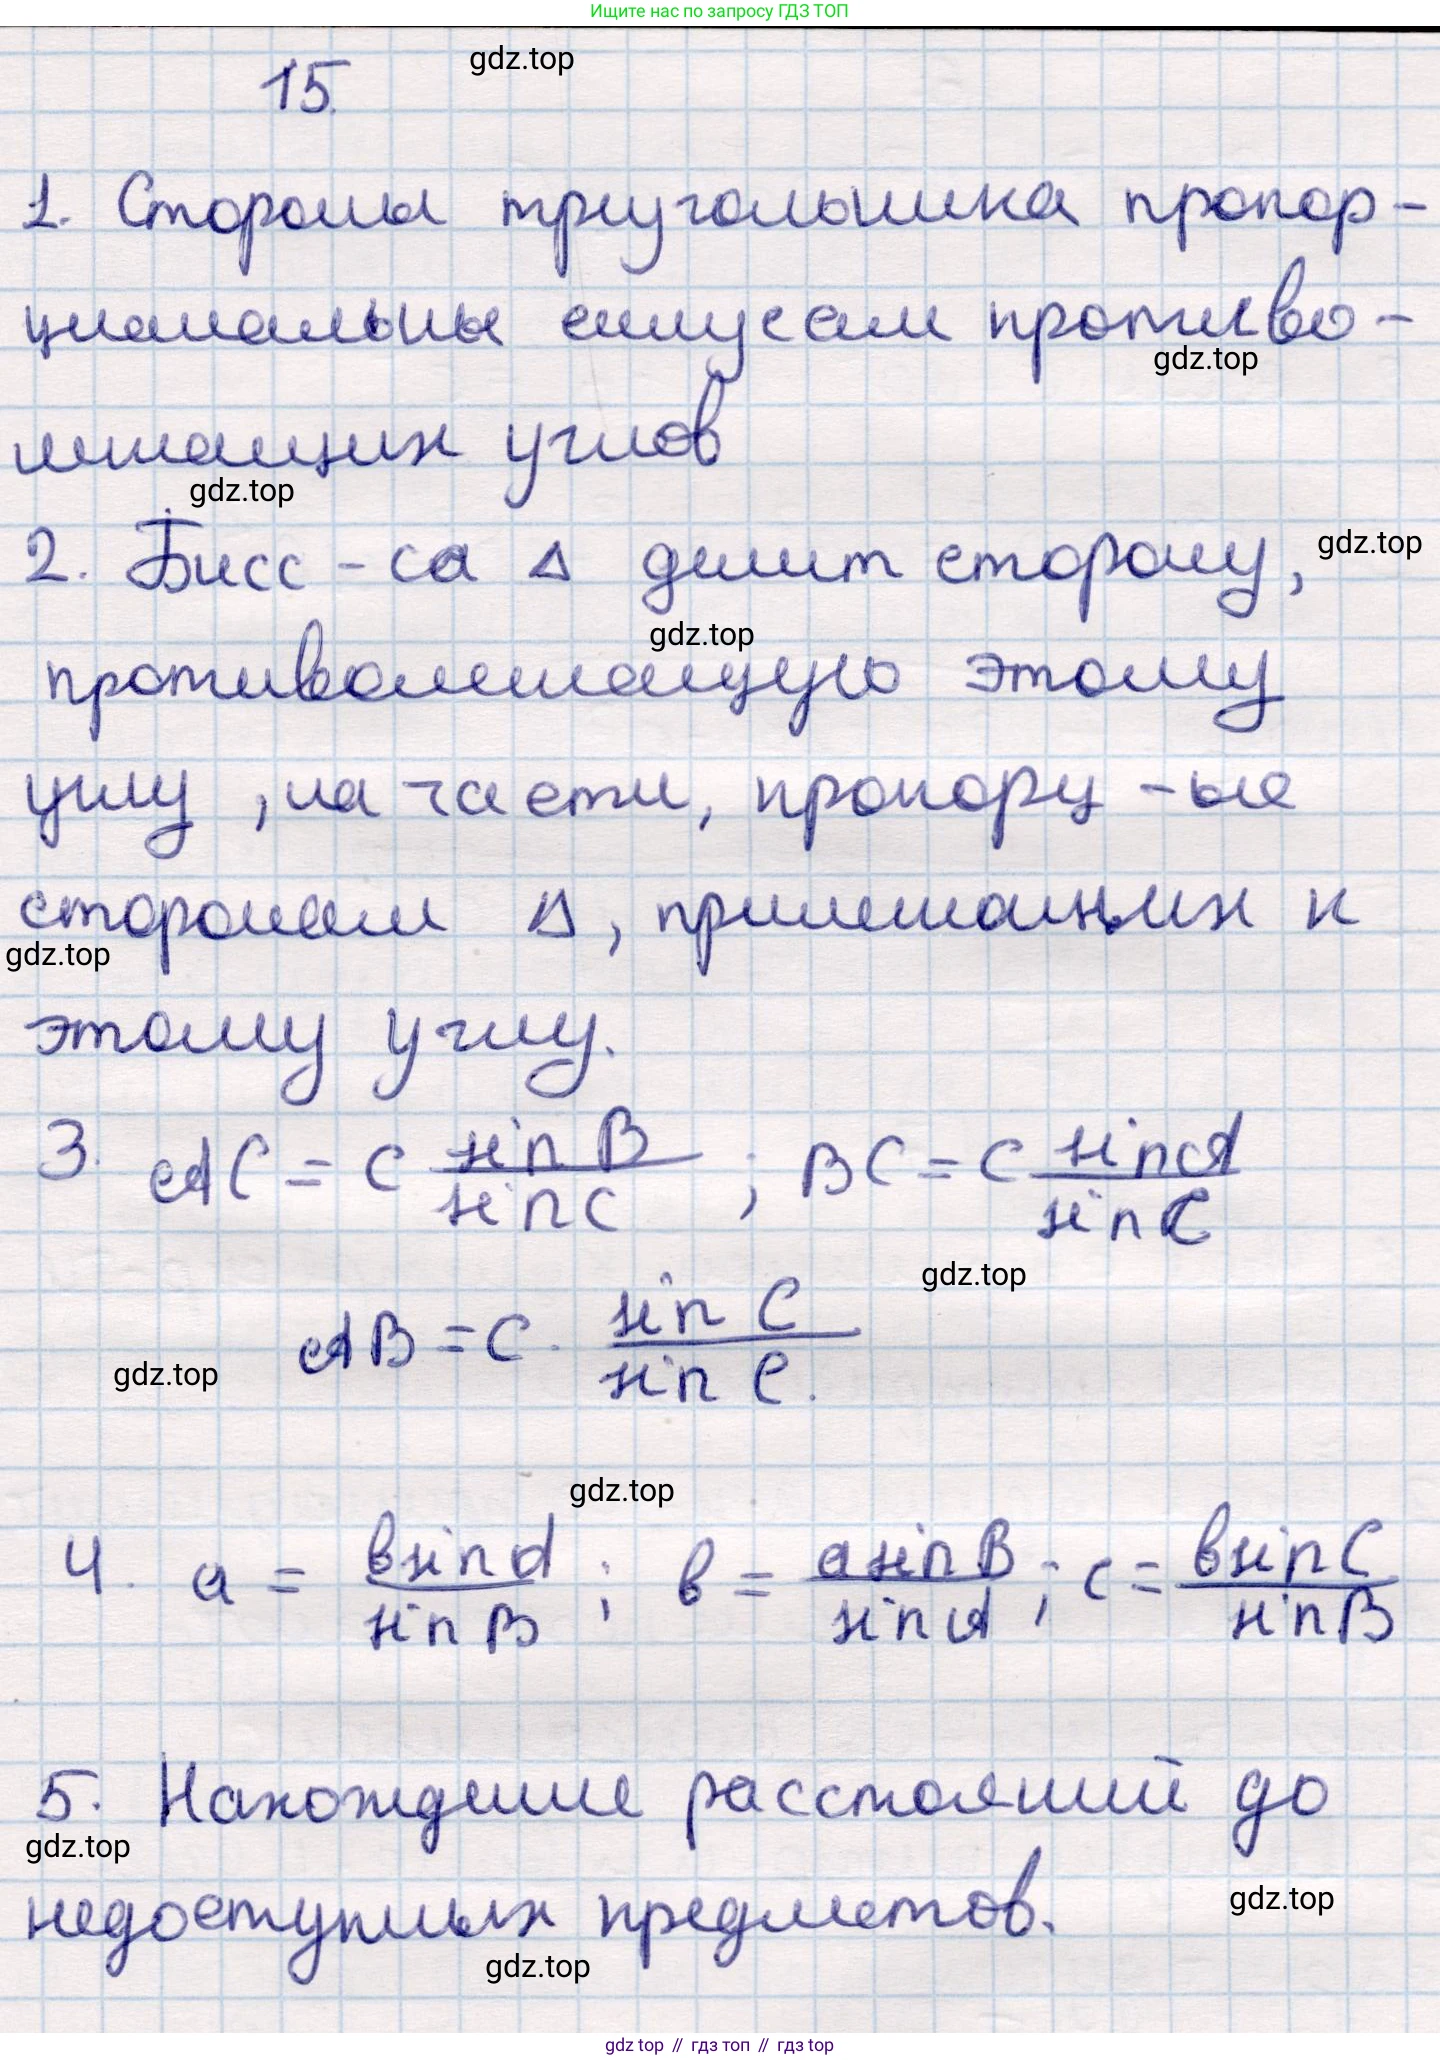 Ищите нас по запросу ГДЗ ТОП
15.
gdz.top
1. Стороны треугольника пропор-
циональны синусам противо-
gdz.top
лежащих углов
gdz.top
2. Бисс-са Δ делит сторону,
gdz.top
gdz.top
противолежащую этому
углу, на части, пропорц-ые
сторонам Δ, прилежащих к
gdz.top
этому углу.
3. AC = c sin B / sin C ; BC = c sin A / sin C
gdz.top
AB = c · sin C / sin C.
gdz.top
gdz.top
4. a = b sin A / sin B ; b = a sin B / sin A ; c = b sin C / sin B
5. Нахождение расстояний до
gdz.top
недоступных предметов.
gdz.top
gdz.top
gdz top // гдз топ // гдз top